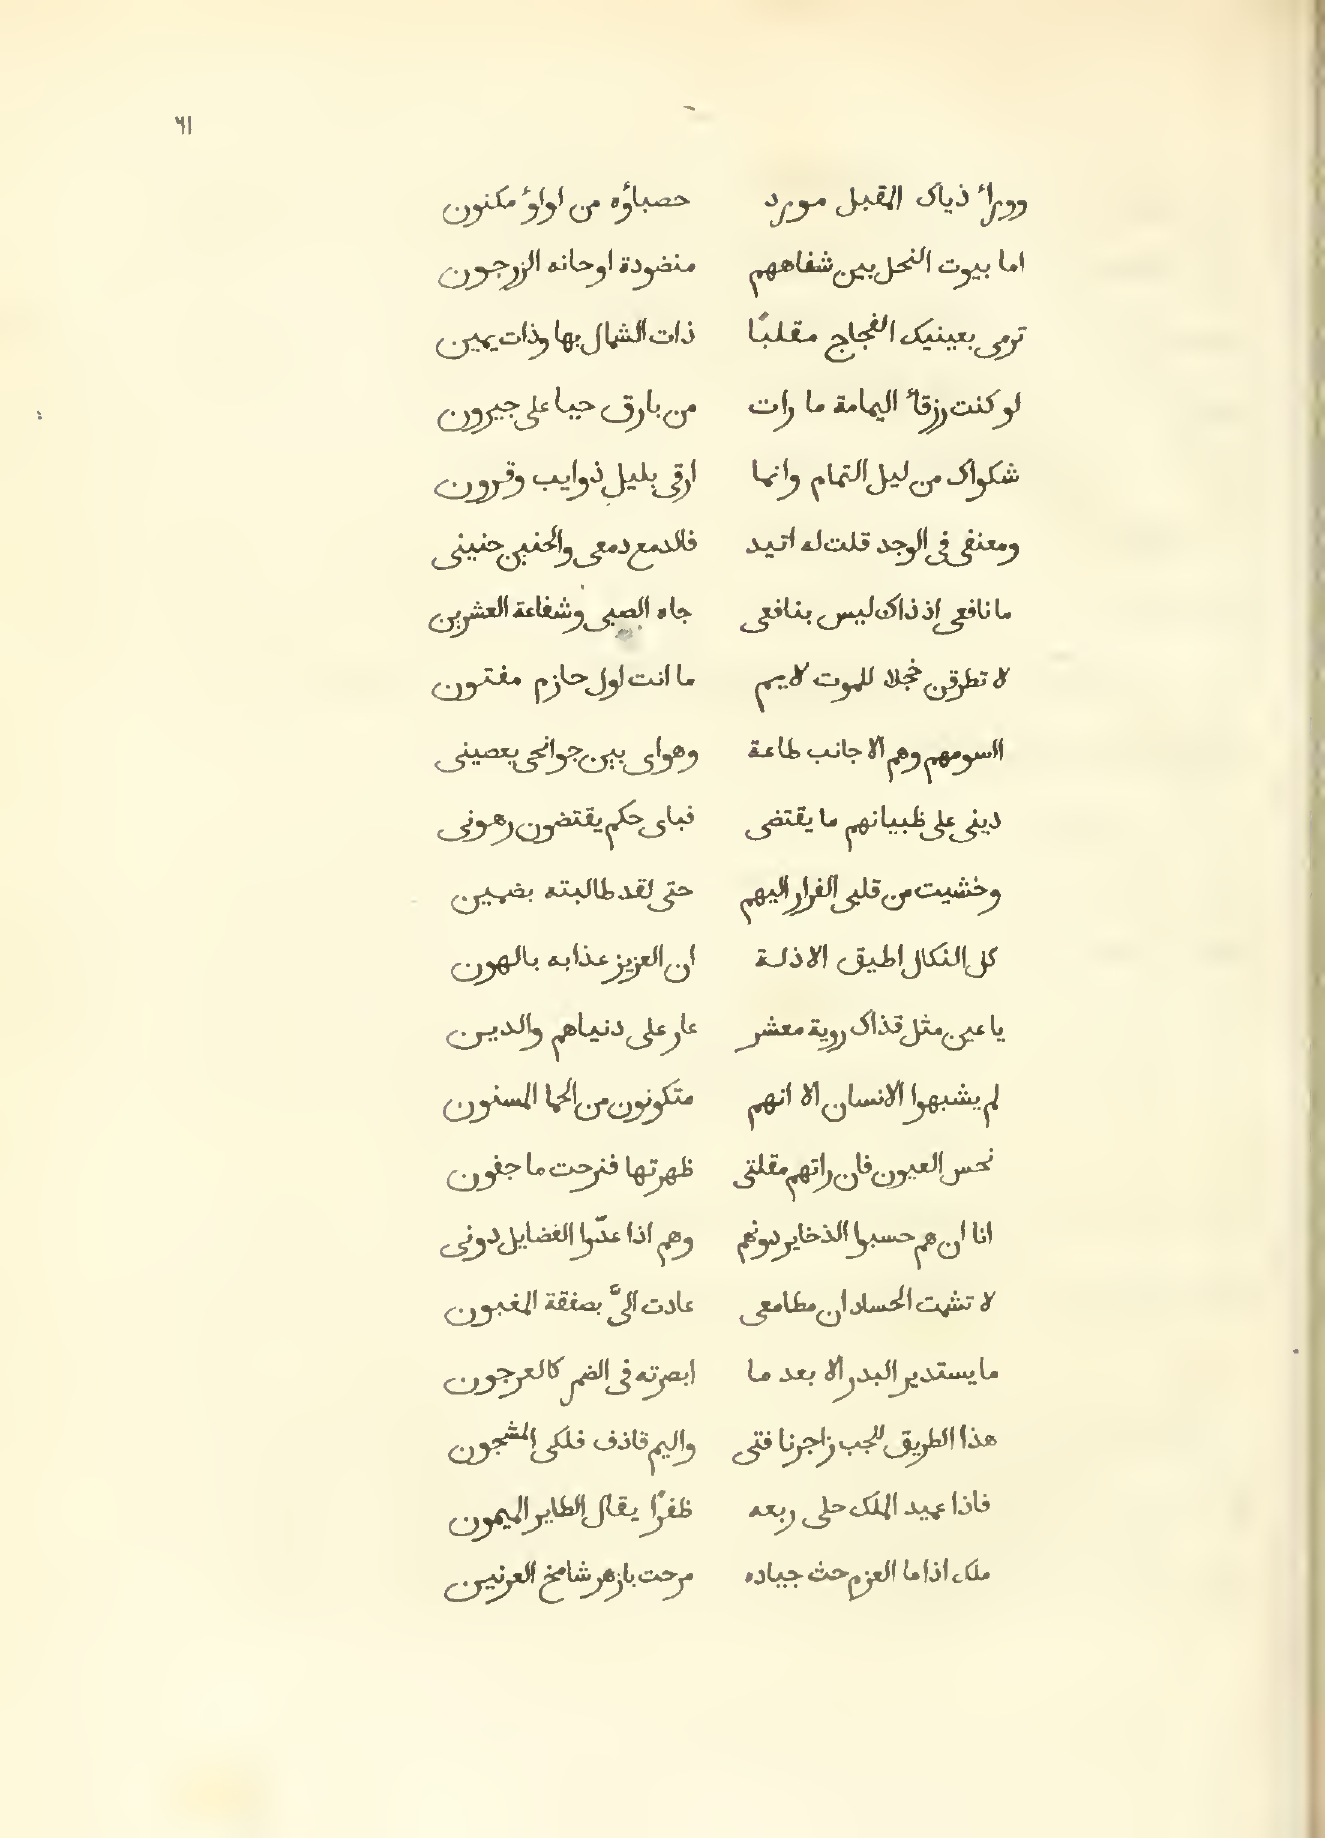 ٦١
ووراء ذياك المقبل مورد حصباؤه من لولؤ مكنون
اما بيوت النحل بين شفاههم منضودة او حانه الزرجون
ترمى بعينيك الفجاج مقلبًا ذات الشمال بها وذات يمين
لو كنت زرقاء اليمامة ما رات من بارق حيا على جيرون
شكواك من ليل التمام وانما ارقى بليل ذوايب وقرون
ومعنفى فى الوجد قلت له اتيد فالدمع دمعى والحنين حنينى
ما نافعى اذ ذاك ليس بنافعى جاه الصبى وشفاعة العشرين
لا تطرقن خجلا للموت لايم ما انت اول حازم مفتون
االسومهم وهم الا جانب طاعة وهواى بين جوانحى يعصينى
دينى على ظبياتهم ما يقتضى فباى حكم يقتضون رهونى
وخشيت من قلبى الفرار اليهم حتى لقد طالبته بضمين
كل النكال اطيق الا ذلة ان العزيز عذابه بالهون
يا عين مثل قذاك روية معشر عار على دنياهم والدين
لم يشبهوا الانسان الا انهم متكونون من الحما المسنون
نحس العيون فان راتهم مقلتى ظهرتها فنزحت ما جفون
انا ان هم حسبوا الذخاير دونهم وهم اذا عدّوا الفضايل دونى
لا تشمت الحساد ان مطامعى عادت الىَّ بصفقة المغبون
ما يستدير البدر الا بعد ما ابصرته فى الضم كالعرجون
هذا الطريق للجب زاجرنا فتى واليم قاذف فلكى المشجون
فاذا عميد الملك حلى ربعه ظفرًا يقال الطاير الميمون
ملك اذا ما العزم حث جياده مرحت بازهر شامخ العرنين